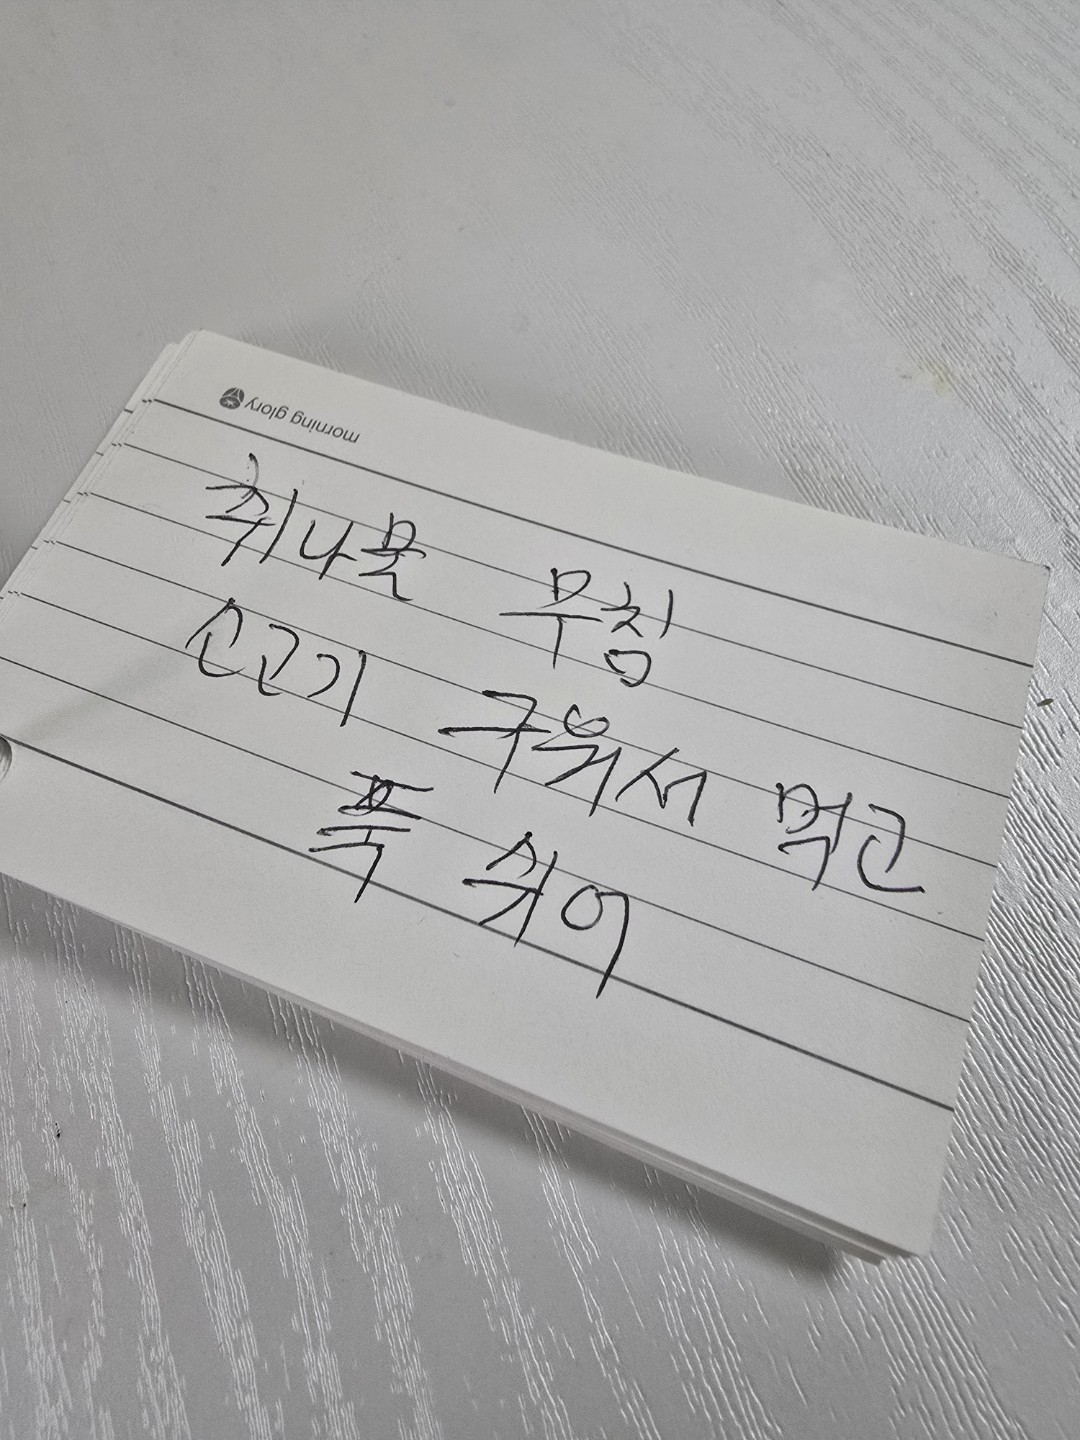 morning glory
취나물 무침
소고기 구워서 먹고
푹 쉬어